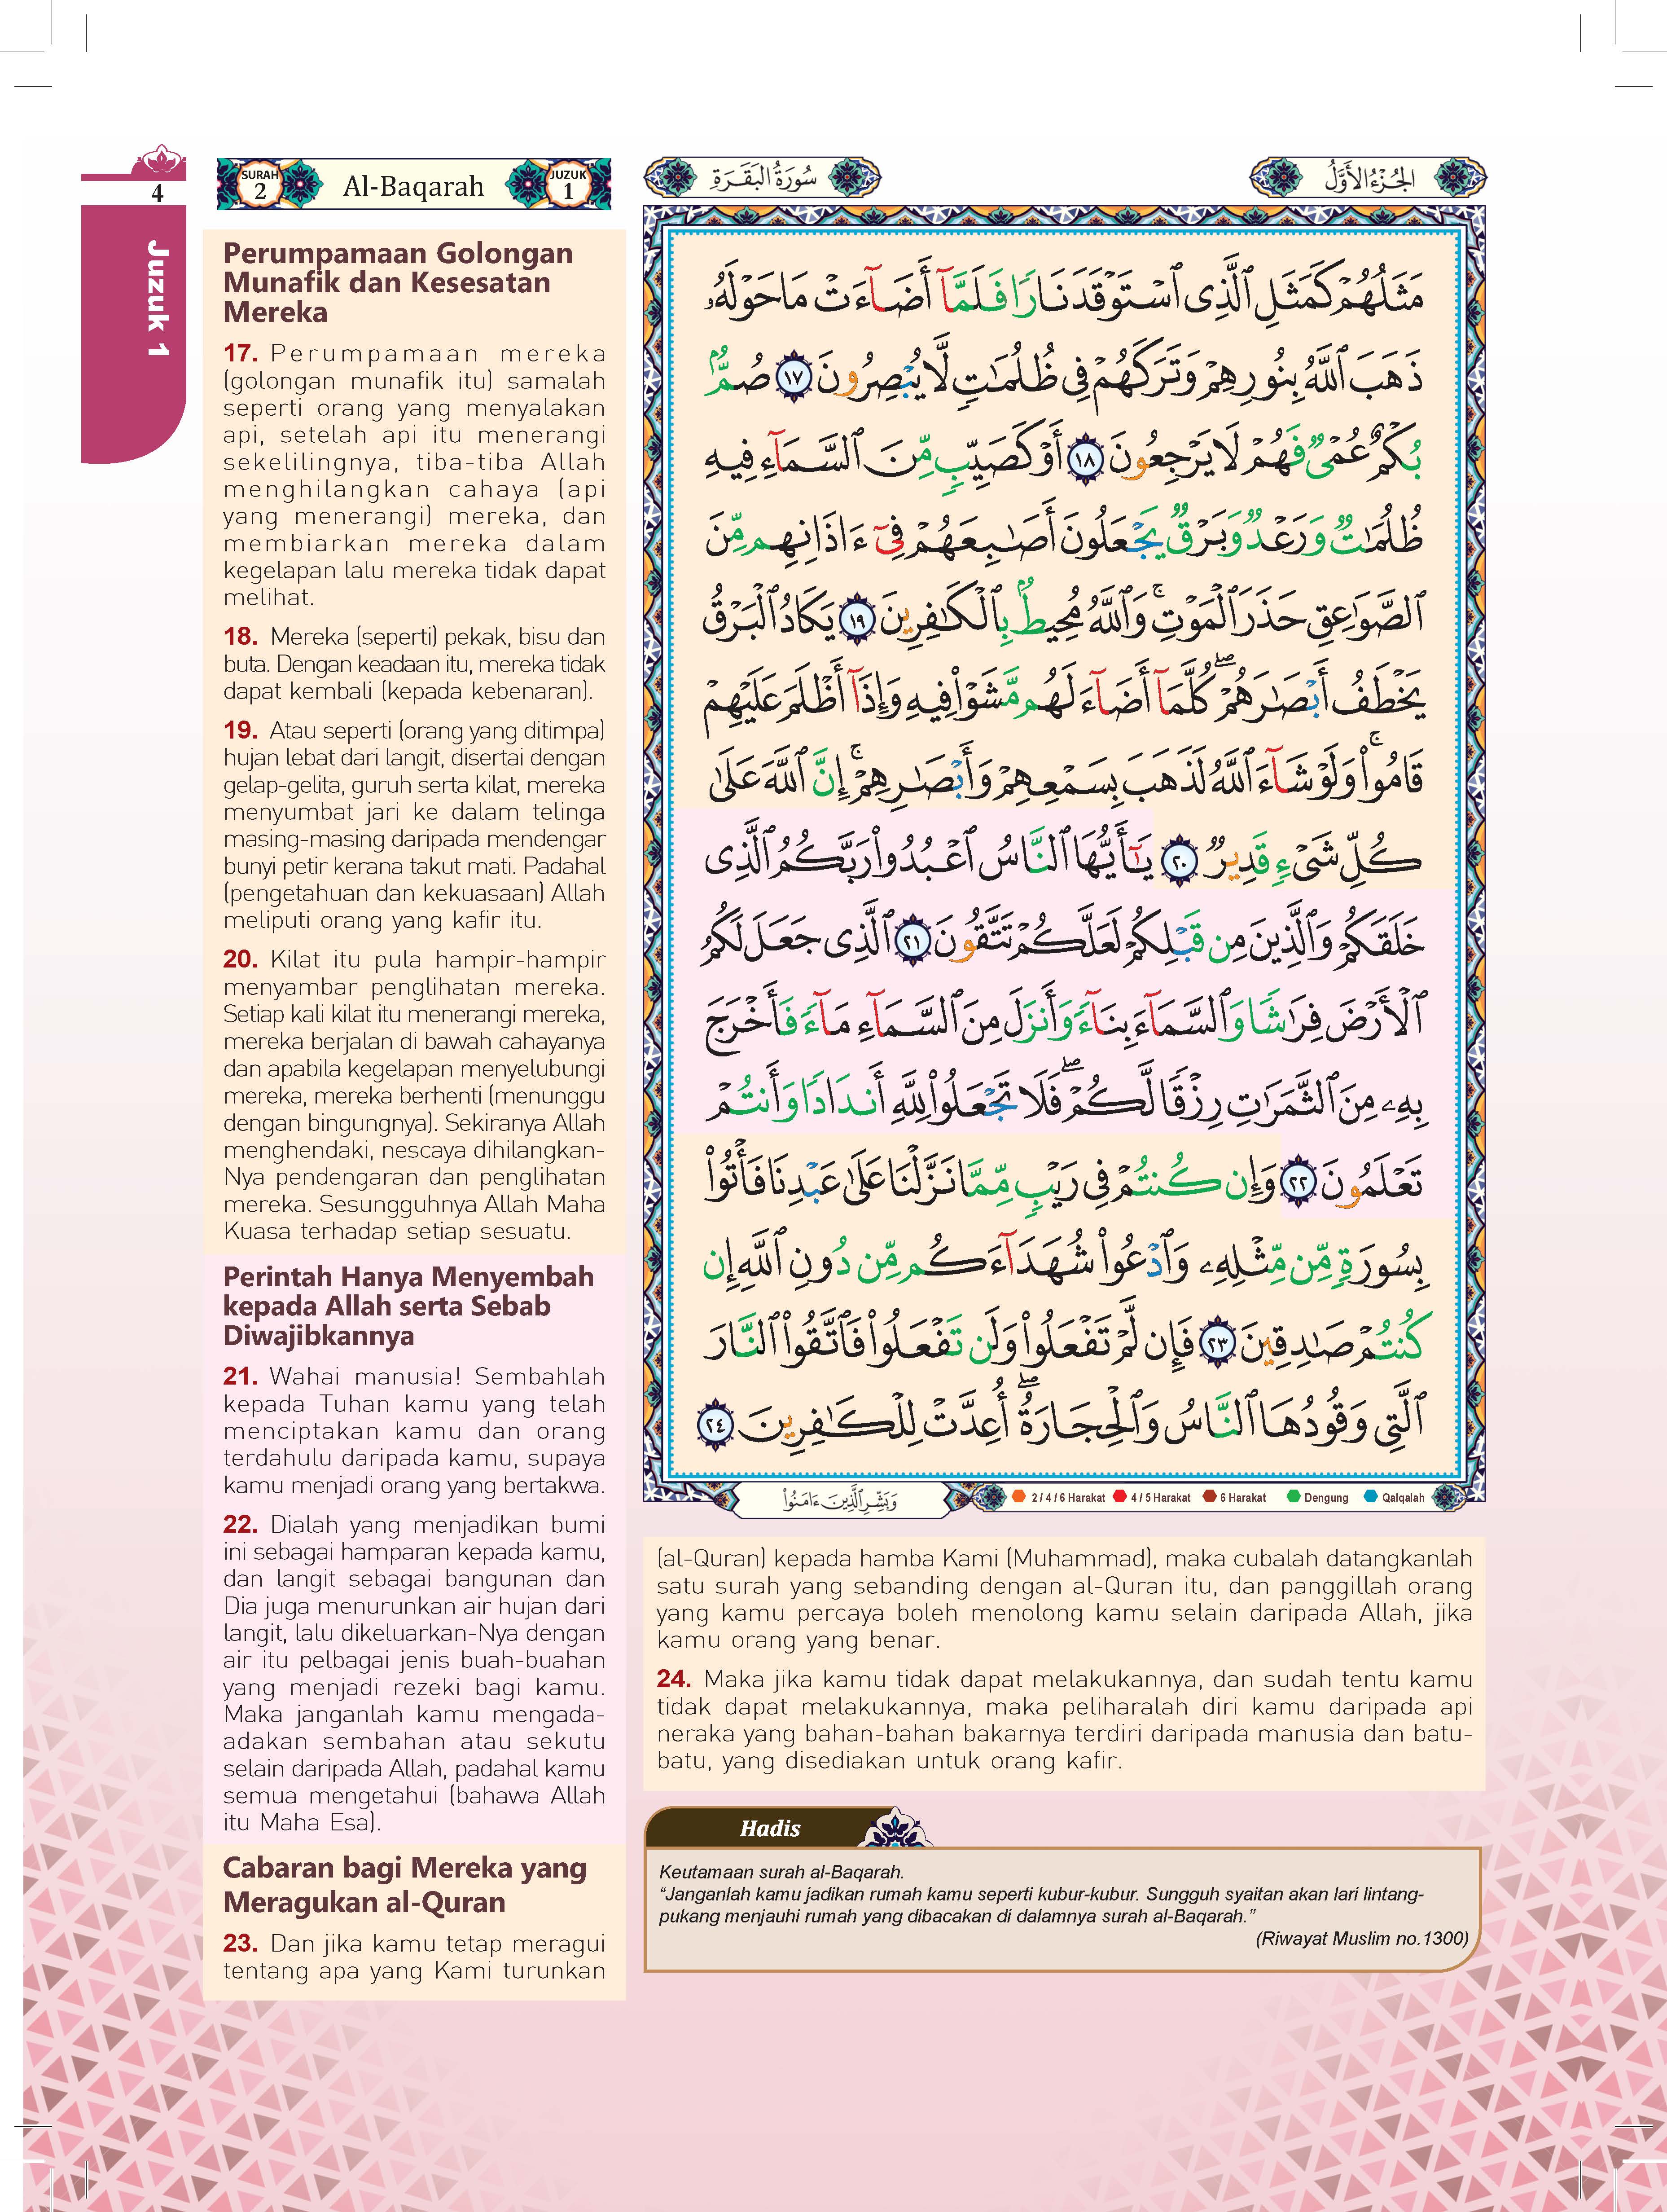 4
Juzuk 1
SURAH
2
Al-Baqarah
JUZUK
1
Perumpamaan Golongan
Munafik dan Kesesatan
Mereka
17. Perumpamaan mereka
(golongan munafik itu) samalah
seperti orang yang menyalakan
api, setelah api itu menerangi
sekelilingnya, tiba-tiba Allah
menghilangkan cahaya (api
yang menerangi) mereka, dan
membiarkan mereka dalam
kegelapan lalu mereka tidak dapat
melihat.
18. Mereka (seperti) pekak, bisu dan
buta. Dengan keadaan itu, mereka tidak
dapat kembali (kepada kebenaran).
19. Atau seperti (orang yang ditimpa)
hujan lebat dari langit, disertai dengan
gelap-gelita, guruh serta kilat, mereka
menyumbat jari ke dalam telinga
masing-masing daripada mendengar
bunyi petir kerana takut mati. Padahal
(pengetahuan dan kekuasaan) Allah
meliputi orang yang kafir itu.
20. Kilat itu pula hampir-hampir
menyambar penglihatan mereka.
Setiap kali kilat itu menerangi mereka,
mereka berjalan di bawah cahayanya
dan apabila kegelapan menyelubungi
mereka, mereka berhenti (menunggu
dengan bingungnya). Sekiranya Allah
menghendaki, nescaya dihilangkan-
Nya pendengaran dan penglihatan
mereka. Sesungguhnya Allah Maha
Kuasa terhadap setiap sesuatu.
Perintah Hanya Menyembah
kepada Allah serta Sebab
Diwajibkannya
21. Wahai manusia! Sembahlah
kepada Tuhan kamu yang telah
menciptakan kamu dan orang
terdahulu daripada kamu, supaya
kamu menjadi orang yang bertakwa.
22. Dialah yang menjadikan bumi
ini sebagai hamparan kepada kamu,
dan langit sebagai bangunan dan
Dia juga menurunkan air hujan dari
langit, lalu dikeluarkan-Nya dengan
air itu pelbagai jenis buah-buahan
yang menjadi rezeki bagi kamu.
Maka janganlah kamu mengada-
adakan sembahan atau sekutu
selain daripada Allah, padahal kamu
semua mengetahui (bahawa Allah
itu Maha Esa).
Cabaran bagi Mereka yang
Meragukan al-Quran
23. Dan jika kamu tetap meragui
tentang apa yang Kami turunkan
الجُزْءُ الأَوَّلُ
سُورَةُ البَقَرَةِ
مَثَلُهُمْ كَمَثَلِ ٱلَّذِى ٱسْتَوْقَدَ نَارًا فَلَمَّآ أَضَآءَتْ مَا حَوْلَهُۥ
ذَهَبَ ٱللَّهُ بِنُورِهِمْ وَتَرَكَهُمْ فِى ظُلُمَٰتٍ لَّا يُبْصِرُونَ ١٧ صُمٌّۢ
بُكْمٌ عُمْىٌ فَهُمْ لَا يَرْجِعُونَ ١٨ أَوْ كَصَيِّبٍ مِّنَ ٱلسَّمَآءِ فِيهِ
ظُلُمَٰتٌ وَرَعْدٌ وَبَرْقٌ يَجْعَلُونَ أَصَٰبِعَهُمْ فِىٓ ءَاذَانِهِم مِّنَ
ٱلصَّوَٰعِقِ حَذَرَ ٱلْمَوْتِ ۚ وَٱللَّهُ مُحِيطٌۢ بِٱلْكَٰفِرِينَ ١٩ يَكَادُ ٱلْبَرْقُ
يَخْطَفُ أَبْصَٰرَهُمْ ۖ كُلَّمَآ أَضَآءَ لَهُم مَّشَوْا۟ فِيهِ وَإِذَآ أَظْلَمَ عَلَيْهِمْ
قَامُوا۟ ۚ وَلَوْ شَآءَ ٱللَّهُ لَذَهَبَ بِسَمْعِهِمْ وَأَبْصَٰرِهِمْ ۚ إِنَّ ٱللَّهَ عَلَىٰ
كُلِّ شَىْءٍ قَدِيرٌ ٢٠ يَٰٓأَيُّهَا ٱلنَّاسُ ٱعْبُدُوا۟ رَبَّكُمُ ٱلَّذِى
خَلَقَكُمْ وَٱلَّذِينَ مِن قَبْلِكُمْ لَعَلَّكُمْ تَتَّقُونَ ٢١ ٱلَّذِى جَعَلَ لَكُمُ
ٱلْأَرْضَ فِرَٰشًا وَٱلسَّمَآءَ بِنَآءً وَأَنزَلَ مِنَ ٱلسَّمَآءِ مَآءً فَأَخْرَجَ
بِهِۦ مِنَ ٱلثَّمَرَٰتِ رِزْقًا لَّكُمْ ۖ فَلَا تَجْعَلُوا۟ لِلَّهِ أَندَادًا وَأَنتُمْ
تَعْلَمُونَ ٢٢ وَإِن كُنتُمْ فِى رَيْبٍ مِّمَّا نَزَّلْنَا عَلَىٰ عَبْدِنَا فَأْتُوا۟
بِسُورَةٍ مِّن مِّثْلِهِۦ وَٱدْعُوا۟ شُهَدَآءَكُم مِّن دُونِ ٱللَّهِ إِن
كُنتُمْ صَٰدِقِينَ ٢٣ فَإِن لَّمْ تَفْعَلُوا۟ وَلَن تَفْعَلُوا۟ فَٱتَّقُوا۟ ٱلنَّارَ
ٱلَّتِى وَقُودُهَا ٱلنَّاسُ وَٱلْحِجَارَةُ ۖ أُعِدَّتْ لِلْكَٰفِرِينَ ٢٤
وَبَشِّرِ ٱلَّذِينَ ءَامَنُوا۟
2 / 4 / 6 Harakat 4 / 5 Harakat 6 Harakat Dengung Qalqalah
(al-Quran) kepada hamba Kami (Muhammad), maka cubalah datangkanlah
satu surah yang sebanding dengan al-Quran itu, dan panggillah orang
yang kamu percaya boleh menolong kamu selain daripada Allah, jika
kamu orang yang benar.
24. Maka jika kamu tidak dapat melakukannya, dan sudah tentu kamu
tidak dapat melakukannya, maka peliharalah diri kamu daripada api
neraka yang bahan-bahan bakarnya terdiri daripada manusia dan batu-
batu, yang disediakan untuk orang kafir.
Hadis
Keutamaan surah al-Baqarah.
“Janganlah kamu jadikan rumah kamu seperti kubur-kubur. Sungguh syaitan akan lari lintang-
pukang menjauhi rumah yang dibacakan di dalamnya surah al-Baqarah.”
(Riwayat Muslim no.1300)